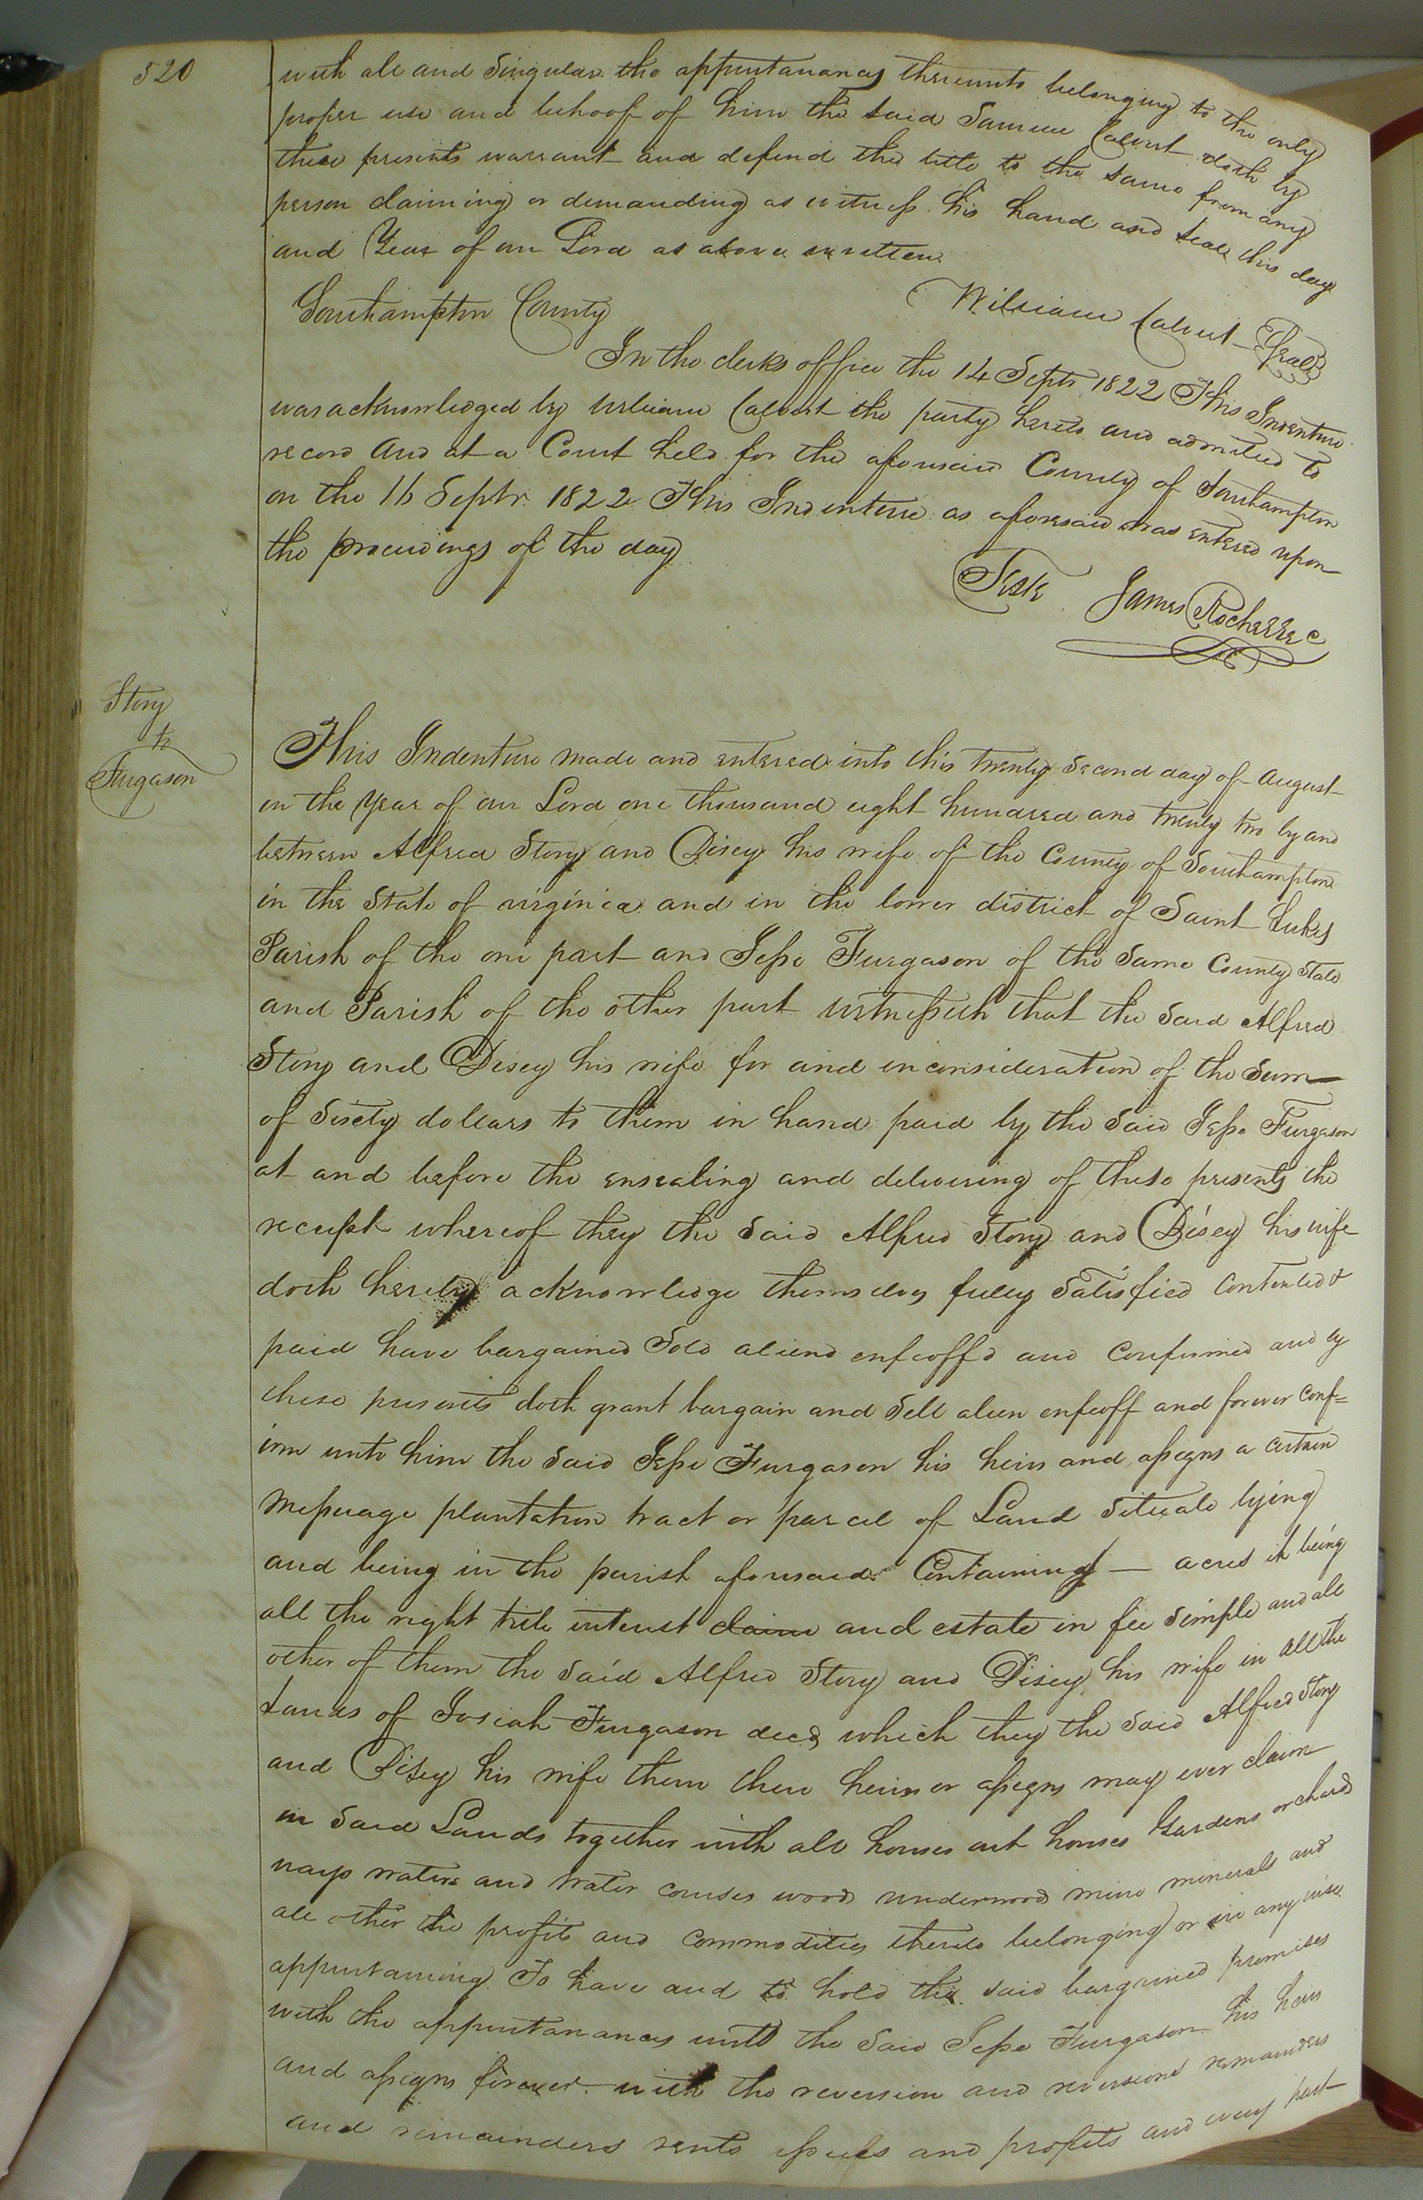 520
with all and Singular the appurtanancy thereunto belonging to the only
proper use and behoof of him the said Samuel Calvert doth by
these presents warrant and defend the title to the same from any
person claiming or demanding as witness his hand and seal this day
and Year of our Lord as above written
William Calvert Seal
Southampton County
In the clerks office the 14 Septr 1822 This Indenture
was acknowledged by William Calvert the party hereto and admitted to
record and at a Court held for the aforesaid County of Southampton
on the 16 Septr 1822 This Indenture as aforesaid was entered upon
the proceedings of the day
Teste James Rochelle C
Story
to
Furgason
This Indenture made and entered into this twenty second day of August
in the Year of our Lord one thousand eight hundred and twenty two by and
between Alfred Story and Disey his wife of the County of Southampton
in the State of virginia and in the lower district of Saint Lukes
Parish of the one part and Jesse Furgason of the Same County State
and Parish of the other part witnesseth that the Said Alfred
Story and Disey his wife for and in consideration of the Sum
of Sixty dollars to them in hand paid by the Said Jesse Furgason
at and before the ensealing and delivering of these presents the
receipt whereof they the Said Alfred Story and Disey his wife
doth hereby acknowledge themselves fully Satisfied Contented &
paid have bargained Sold aliend enfeoffd and Confirmed and by
these presents doth grant bargain and Sell alien enfeoff and forever conf=
irm unto him the Said Jesse Furgason his heirs and assigns a certain
Messuage plantation tract or parcel of Land Situate lying
and being in the parish aforesaid Containing — acres it being
all the right title interest claim and estate in fee Simple and all
other of them the Said Alfred Story and Disey his wife in all the
Lands of Josiah Furgason decd which they the Said Alfred Story
and Disey his wife them their heirs or assigns may ever claim
in Said Lands together with all houses out houses Gardens orchard
ways waters and water courses wood underwood mine minerals and
all other the profits and Commodities thereto belonging or in any wise
appurtaining To have and to hold the Said bargained premises
with the appurtanancys unto the Said Jesse Furgason his heirs
and assigns forever with the reversion and reversions remainders
and remainders rents issues and profits and every part